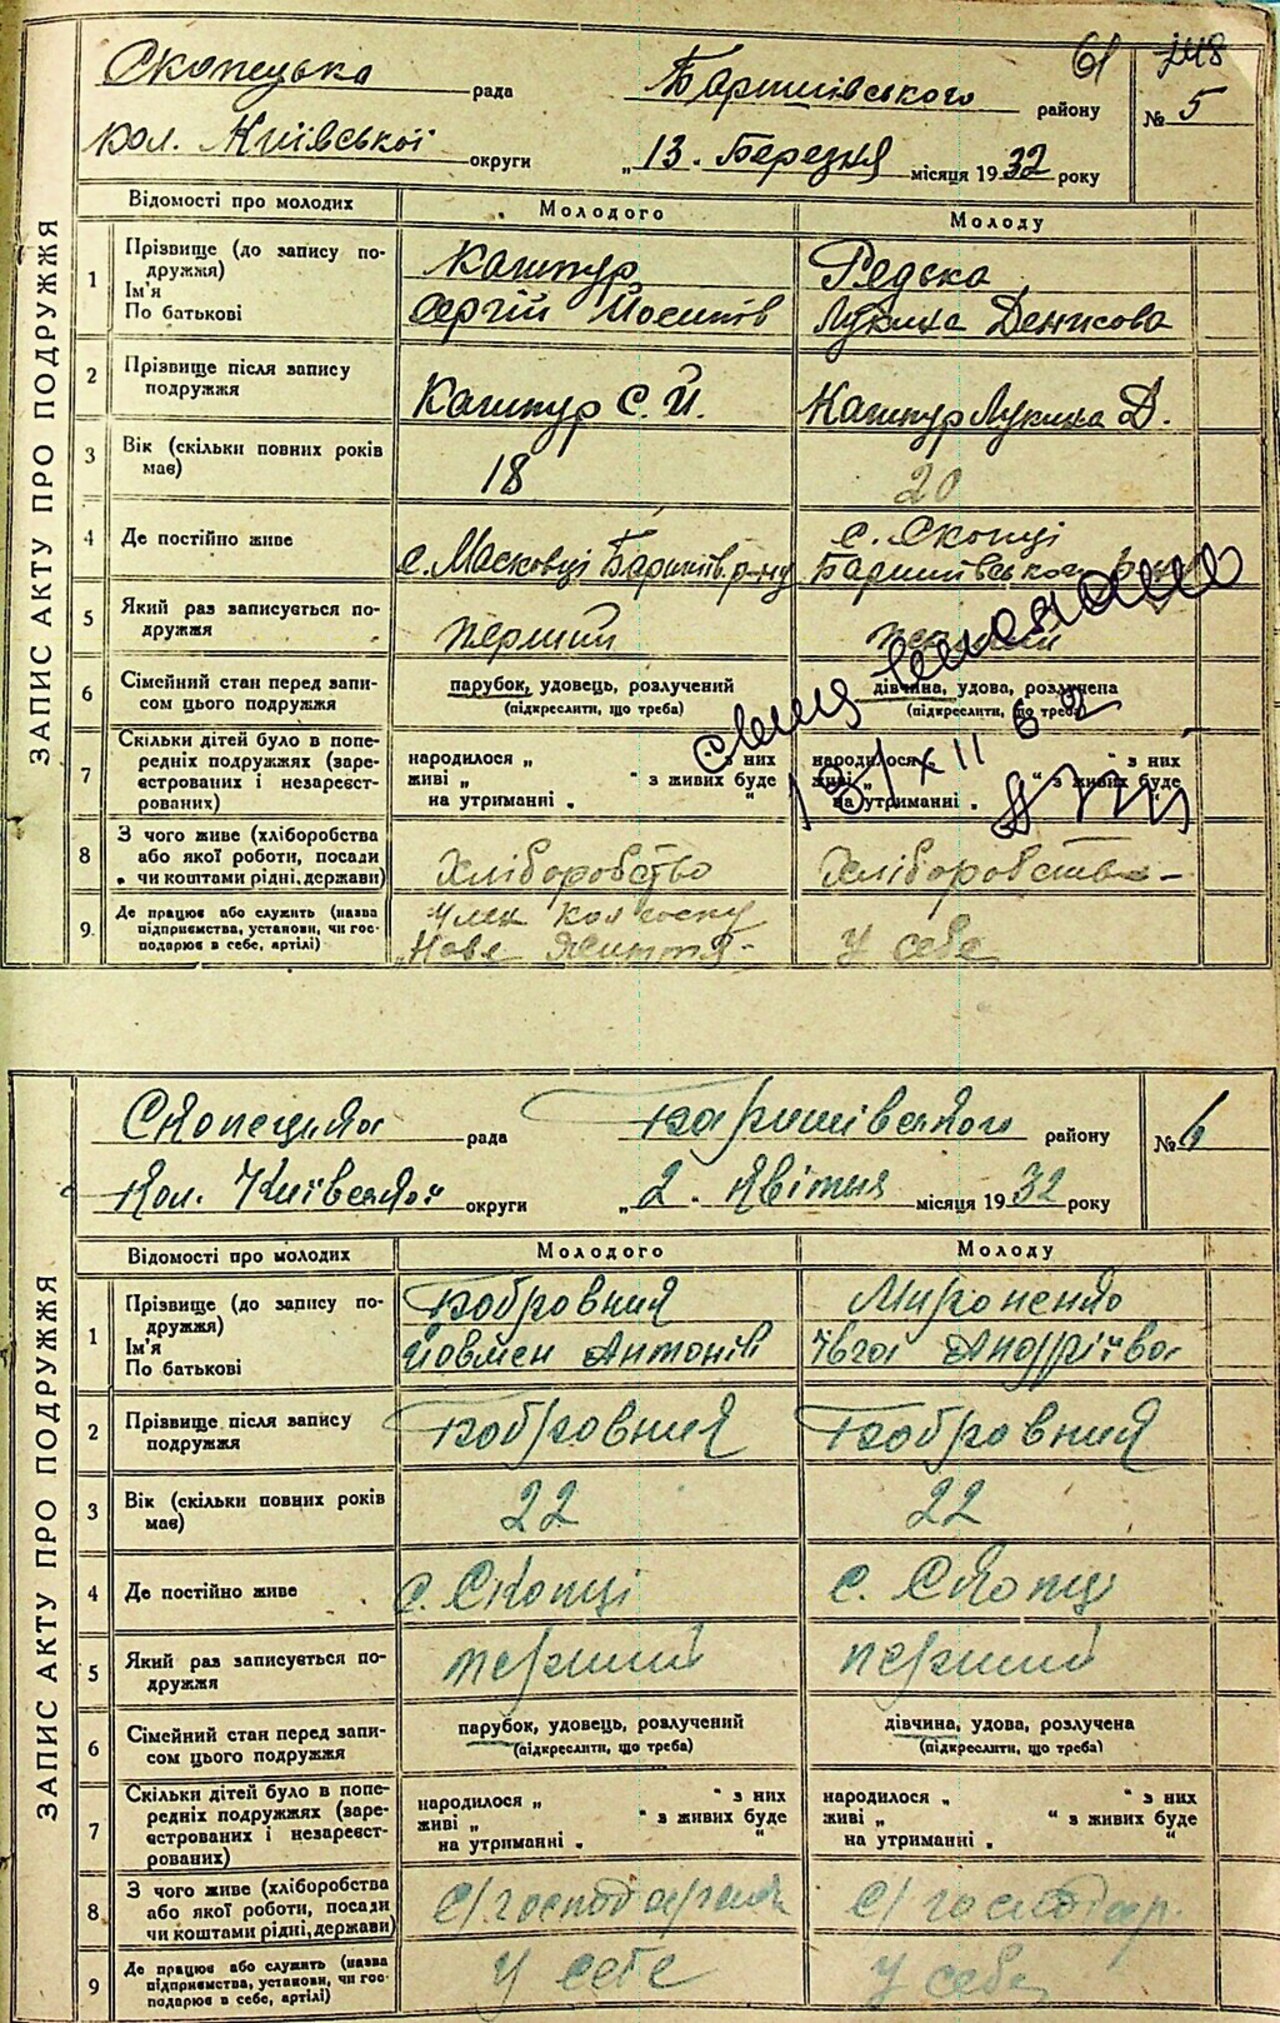 61 248
Скопецька рада Баришівського району № 5
кол. Київської округи „13. Березня місяця 1932 року
ЗАПИС АКТУ ПРО ПОДРУЖЖЯ
Відомості про молодих Молодого Молоду
1 Прізвище (до запису по- Каштур Редька
дружжя)
Ім'я Сергій Йосипів Лукина Денисова
По батькові
2 Прізвище після запису
подружжя Каштур С. Й. Каштур Лукина Д.
3 Вік (скільки повних років
має) 18 20
4 Де постійно живе с. Масковці Баришів. р-ну с. Скопці
Баришівського р-ну
5 Який раз записується по-
дружжя перший перший
6 Сімейний стан перед запи- парубок, удовець, розлучений дівчина, удова, розлучена
сом цього подружжя (підкреслити, що треба) (підкреслити, що треба)
7 Скільки дітей було в попе-
редніх подружжях (заре- народилося „ " з них народилося „ " з них
єстрованих і незареєст- живі „ " з живих буде живі „ " з живих буде
рованих) на утриманні „ " на утриманні „ "
13/XII 62
8 З чого живе (хліборобства
або якої роботи, посади Хліборобство Хліборобство -
чи коштами рідні, держави)
9. Де працює або служить (назва Член колгоспу
підприємства, установи, чи гос- „Нове Життя- у себе
подарює в себе, артілі)
Скопецька рада Баришівського району № 6
кол. Київської округи „2. квітня місяця 1932 року
ЗАПИС АКТУ ПРО ПОДРУЖЖЯ
Відомості про молодих Молодого Молоду
1 Прізвище (до запису по- Бобровник Мироненко
дружжя)
Ім'я Йовмен Антонів Ївга Андріїва
По батькові
2 Прізвище після запису
подружжя Бобровник Бобровник
3 Вік (скільки повних років
має) 22 22
4 Де постійно живе с. Скопці с. Скопці
5 Який раз записується по-
дружжя перший перший
6 Сімейний стан перед запи- парубок, удовець, розлучений дівчина, удова, розлучена
сом цього подружжя (підкреслити, що треба) (підкреслити, що треба)
7 Скільки дітей було в попе-
редніх подружжях (заре- народилося „ " з них народилося „ " з них
єстрованих і незареєст- живі „ " з живих буде живі „ " з живих буде
рованих) на утриманні „ " на утриманні „ "
8 З чого живе (хліборобства
або якої роботи, посади с/господар.
чи коштами рідні, держави)
9 Де працює або служить (назва
підприємства, установи, чи гос- у себе у себе
подарює в себе, артілі)